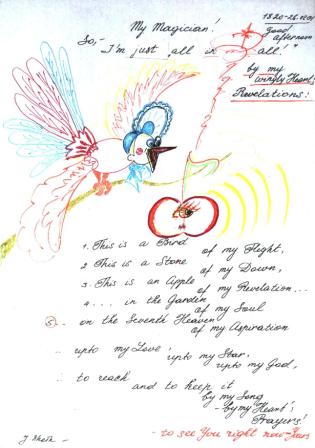 My Magician!
1820-26.
good afternoon
So,- I'm just all in all!"
by my
wingly Heart!
Revelations:
1. This is a Bird of my Flight,
2 This is a Stone of my Down,
3. This is an Apple of my Revelation...
4.... in the Garden of my Soul
5.. on the Seventh Heaven of my Aspiration
.. upto my Love, upto my Star, upto my God,
.. to reach and to keep it
by my Song
- by my Heart!,
Prayers!
- to see You right now-Yours